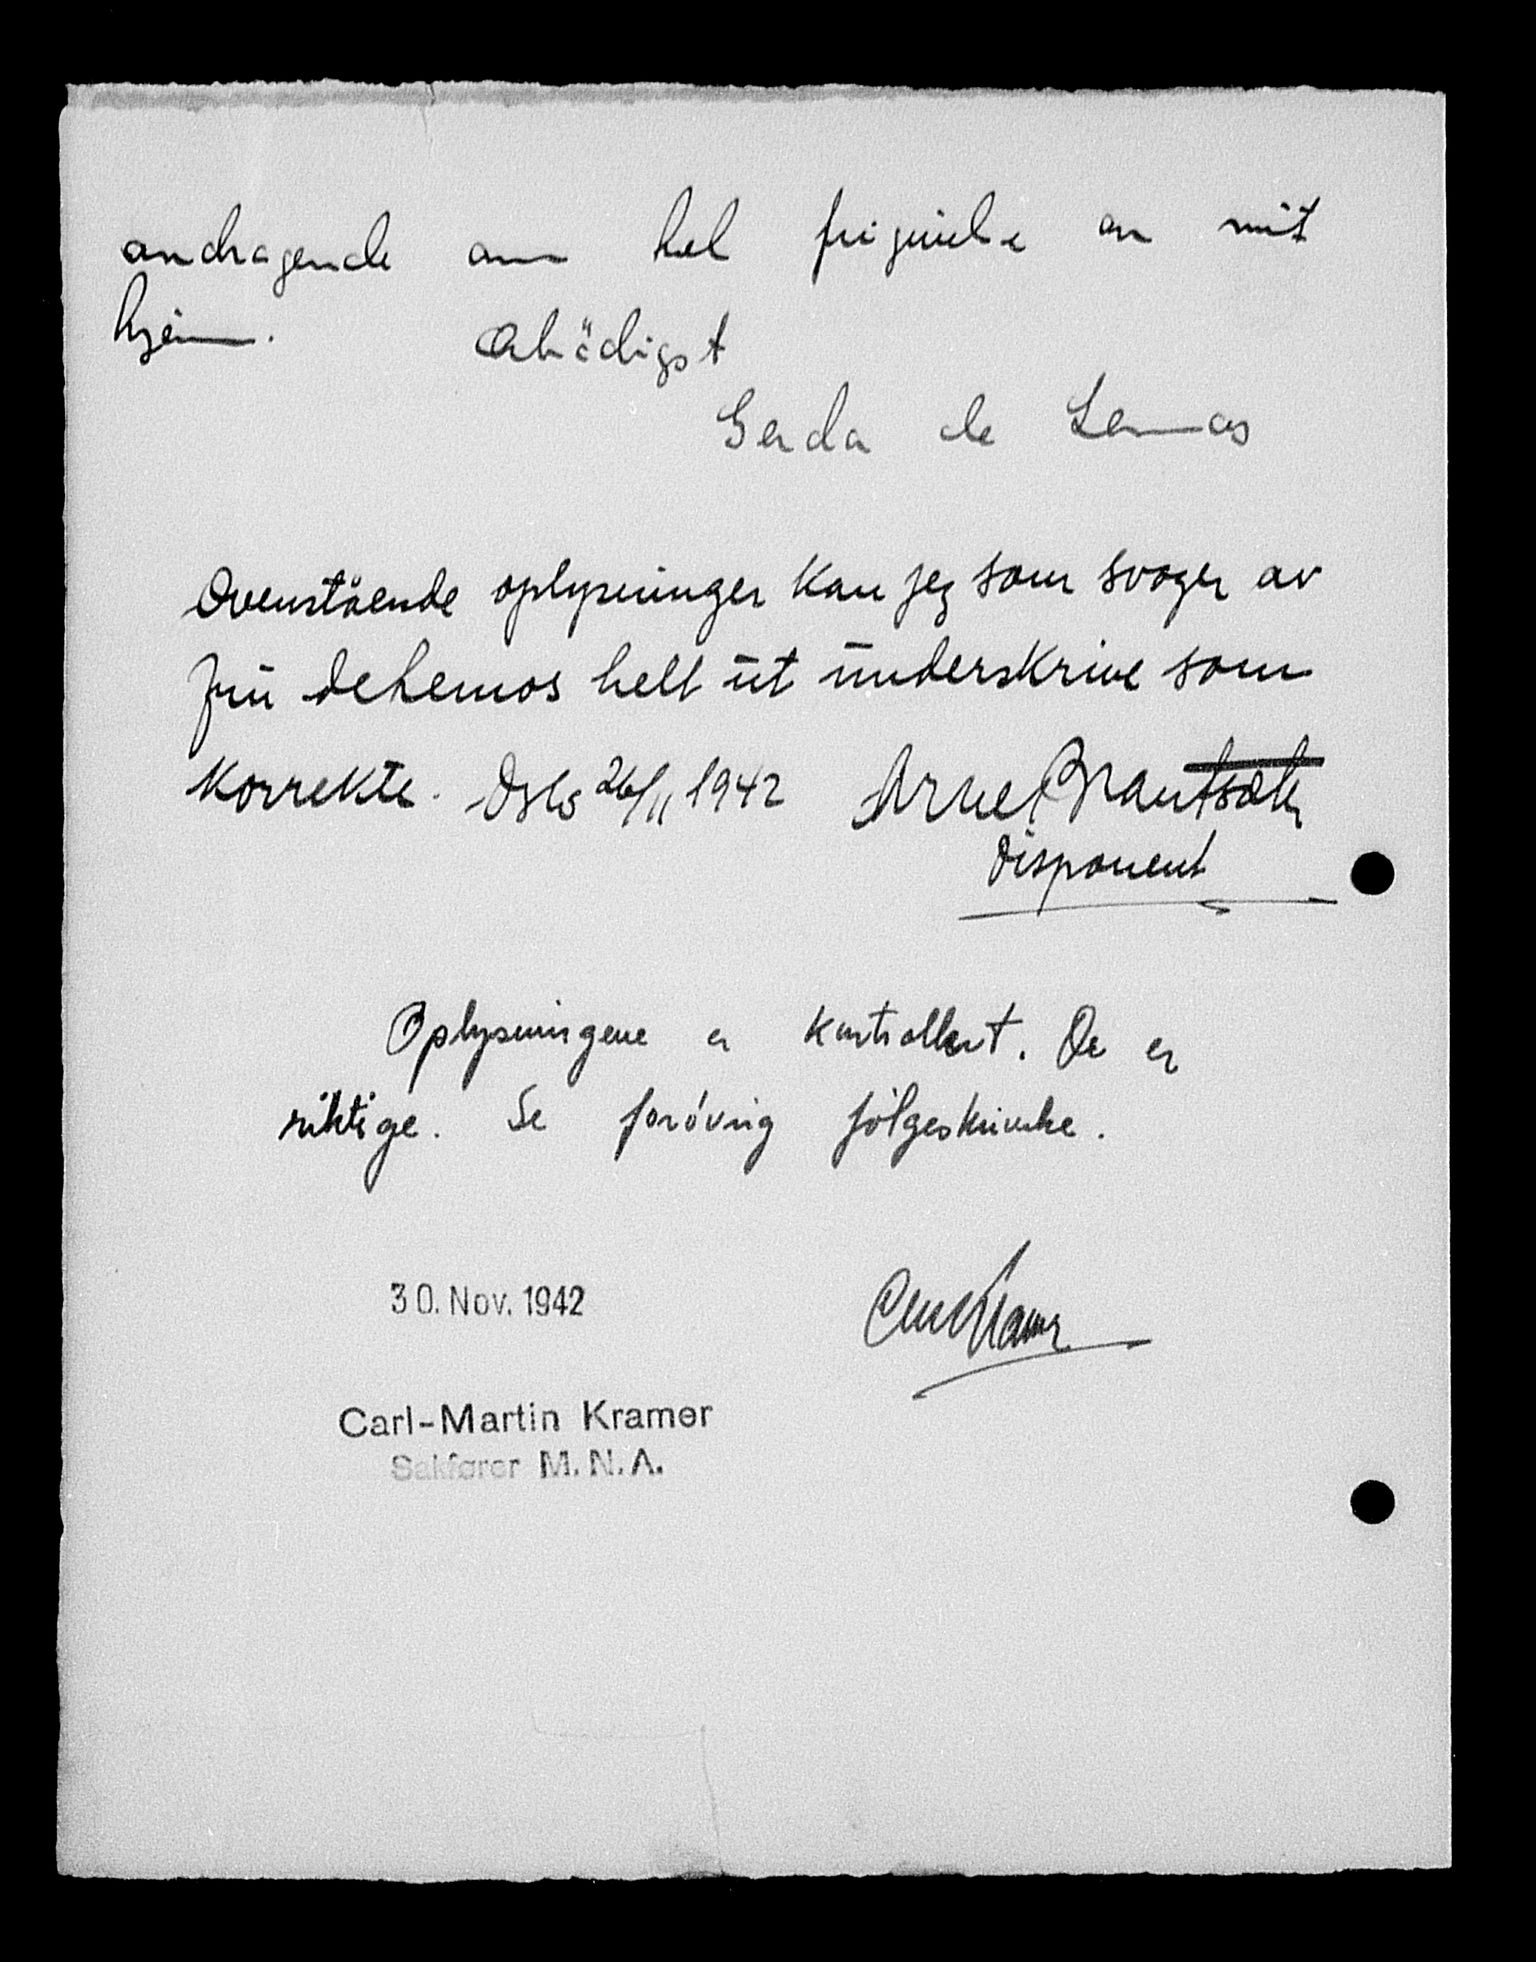 andragende om hel frigivelse av mit
hjem.
Ærbödigst
Gerda de Lemos
Ovenstående oplysninger kan jeg som svoger av
fru deLemos helt ut underskrive som
korrekte. Oslo 26/11 1942 Arne
Disponent
Oplysningene er kontrollert. De er
riktige. Se forövrig fölgeskrivelse.
30. Nov. 1942
Carl-Martin Kramer
Sakfører M.N.A.